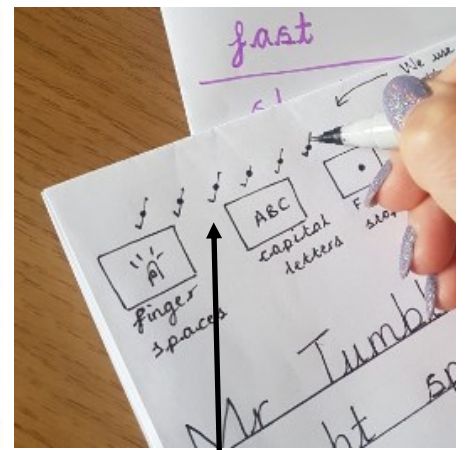 fast
We use
ABC
finger
spaces
capital
letters
F
Mr Tumbl
ht sp